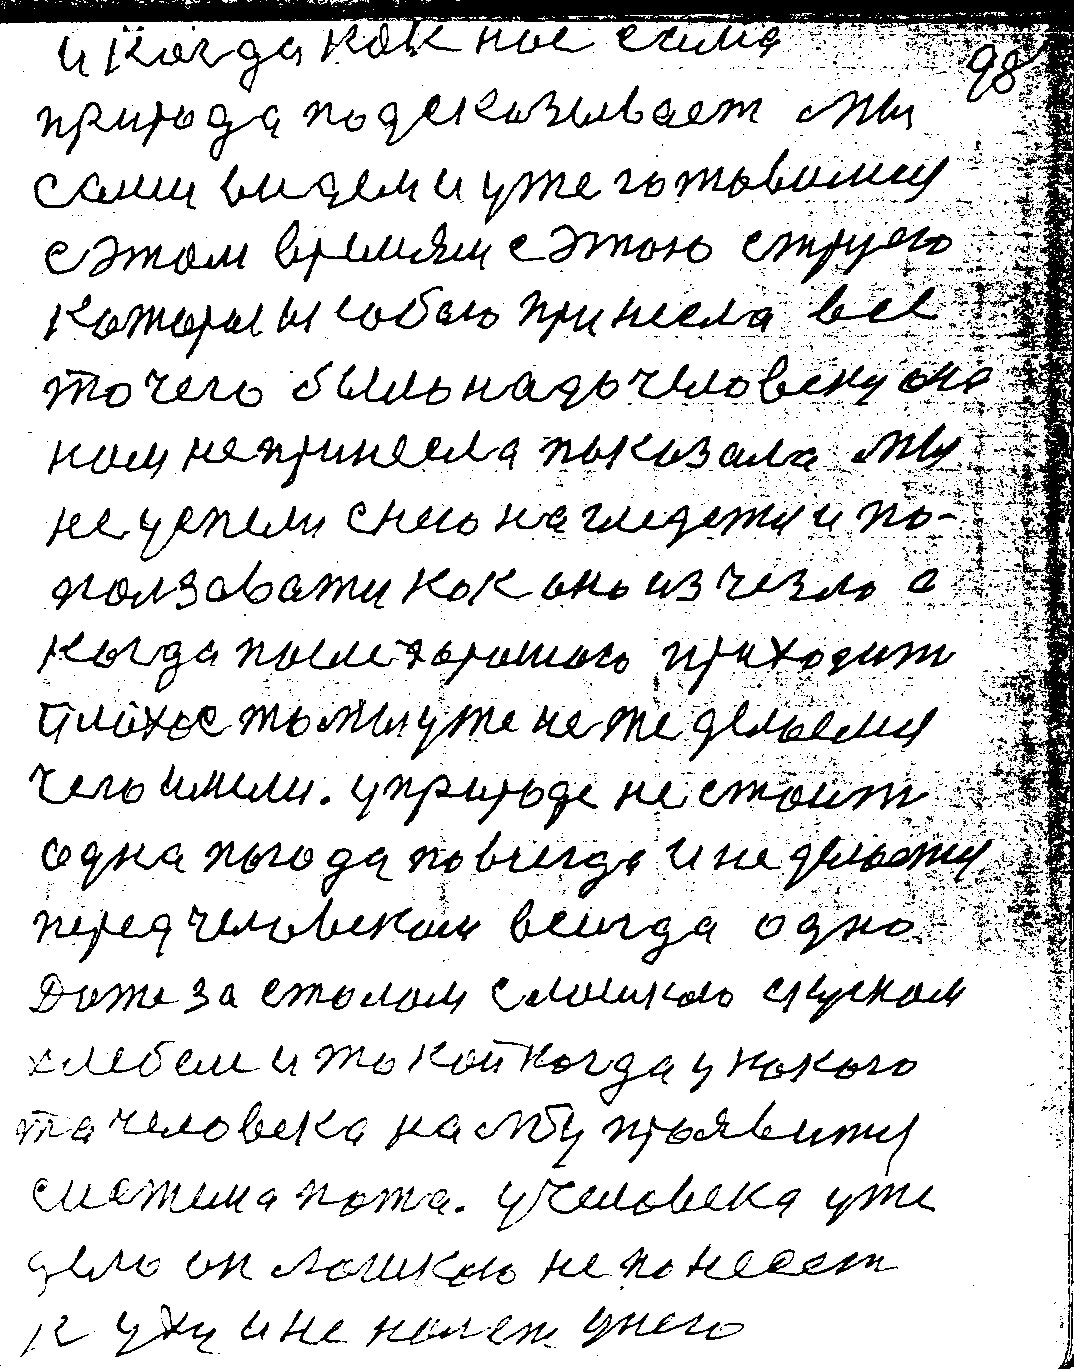 и когда как нас сама
98
природа подсказывает мы
сами видем и уже готовимся
с этом время и с этою струею
которыи собаю принесла все
то чего было надо человеку она
нам не принесла показала мы
не успели с нею нагледетця и по-
ползаватця как оно изчезло а
когда после хорошого приходит
плохое то мы уже не то делаем
чего имели. у природе не стоит
одна погода повсегда и не делаетця
перед человеком всегда одно
Даже за столом с ложкаю с куском
хлебам и то кой когда у какого
та человека на лбу проявитця
система пота. у человека уже
дело он ложкаю не понесет
к уху и не нальет у него